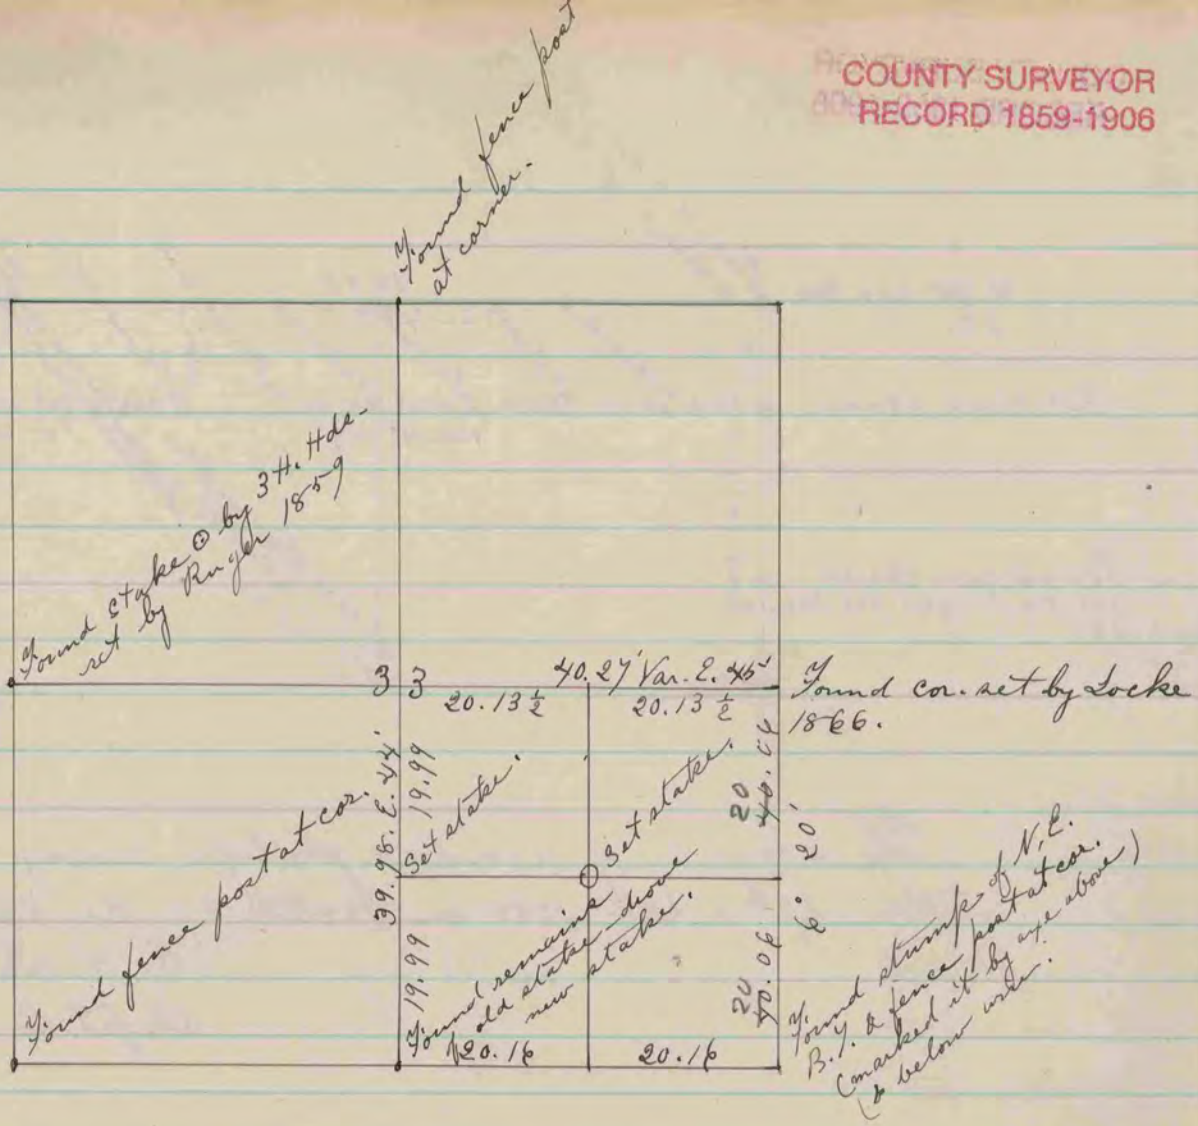 COUNTY SURVEYOR
RECORD 1859-1906
Found fence post
at corner.
Found stake ⊙ by 3 H. Hde-
set by Ruger 1859
3 3
40.27 Var. E. 45'
20.13 ½ 20.13 ½
Found cor. set by Locke
1866.
Found fence post at cor.
39.98. E. 44'
19.99
Set stake.
Set stake.
20
6° 20'
19.99
Found remains
of old stake drove
new stake.
20
40.06
20.16 20.16
Found stump of N.E.
B.T. & fence post at cor.
(marked it by axe above
& below wire.)